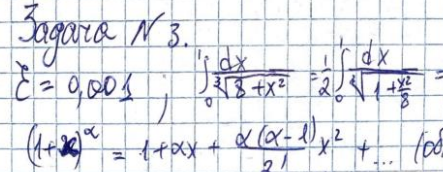 Задача N 3.
Ɛ = 0,001 ; ∫₀¹ dx/∛(8+x²) = 1/2 ∫₀¹ dx/∛(1+x²/8) =
(1+x)^α = 1+αx + α(α-1)/2! x² + ... (об